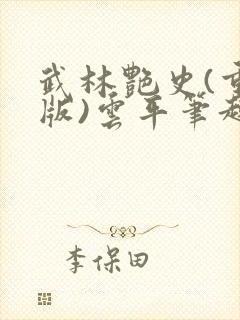 武林艷史(重
版)雲平筆趣
李保田